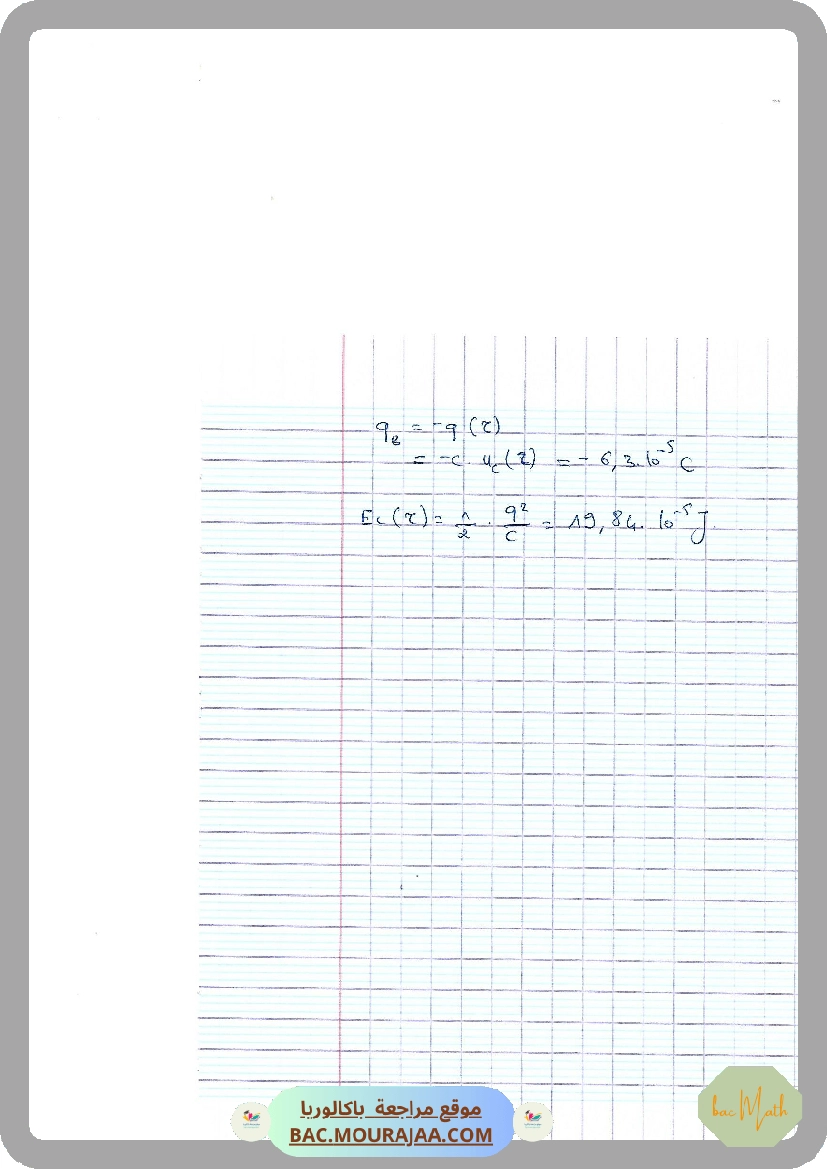 q_B = -q (τ)
= -C. u_c(τ) = - 6,3.10⁻⁵ C
Ec(τ) = 1/2 . q²/C = 19,84. 10⁻⁵ J.
موقع مراجعة باكالوريا
BAC.MOURAJAA.COM
bac Math